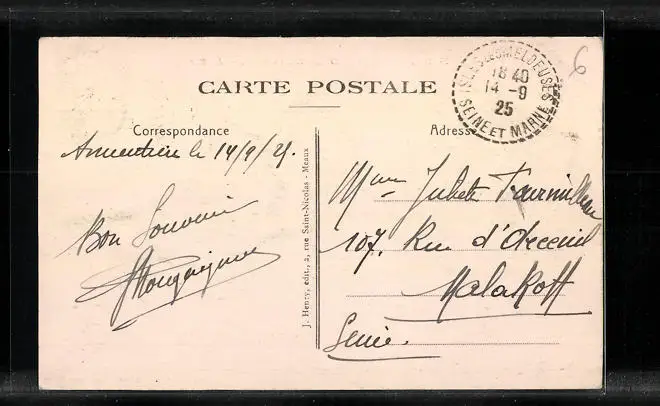 CARTE POSTALE
ISLES-LES-MELDEUSES
18 40
14 -9
25
SEINE ET MARNE
6
Correspondance
Adresse
Armentières le 14/9/25.
Bon Souvenir
Mme Juliette
107, Rue d'Arcueil
Malakoff
Seine.
J. Henry, édit., 2, rue Saint-Nicolas - Meaux